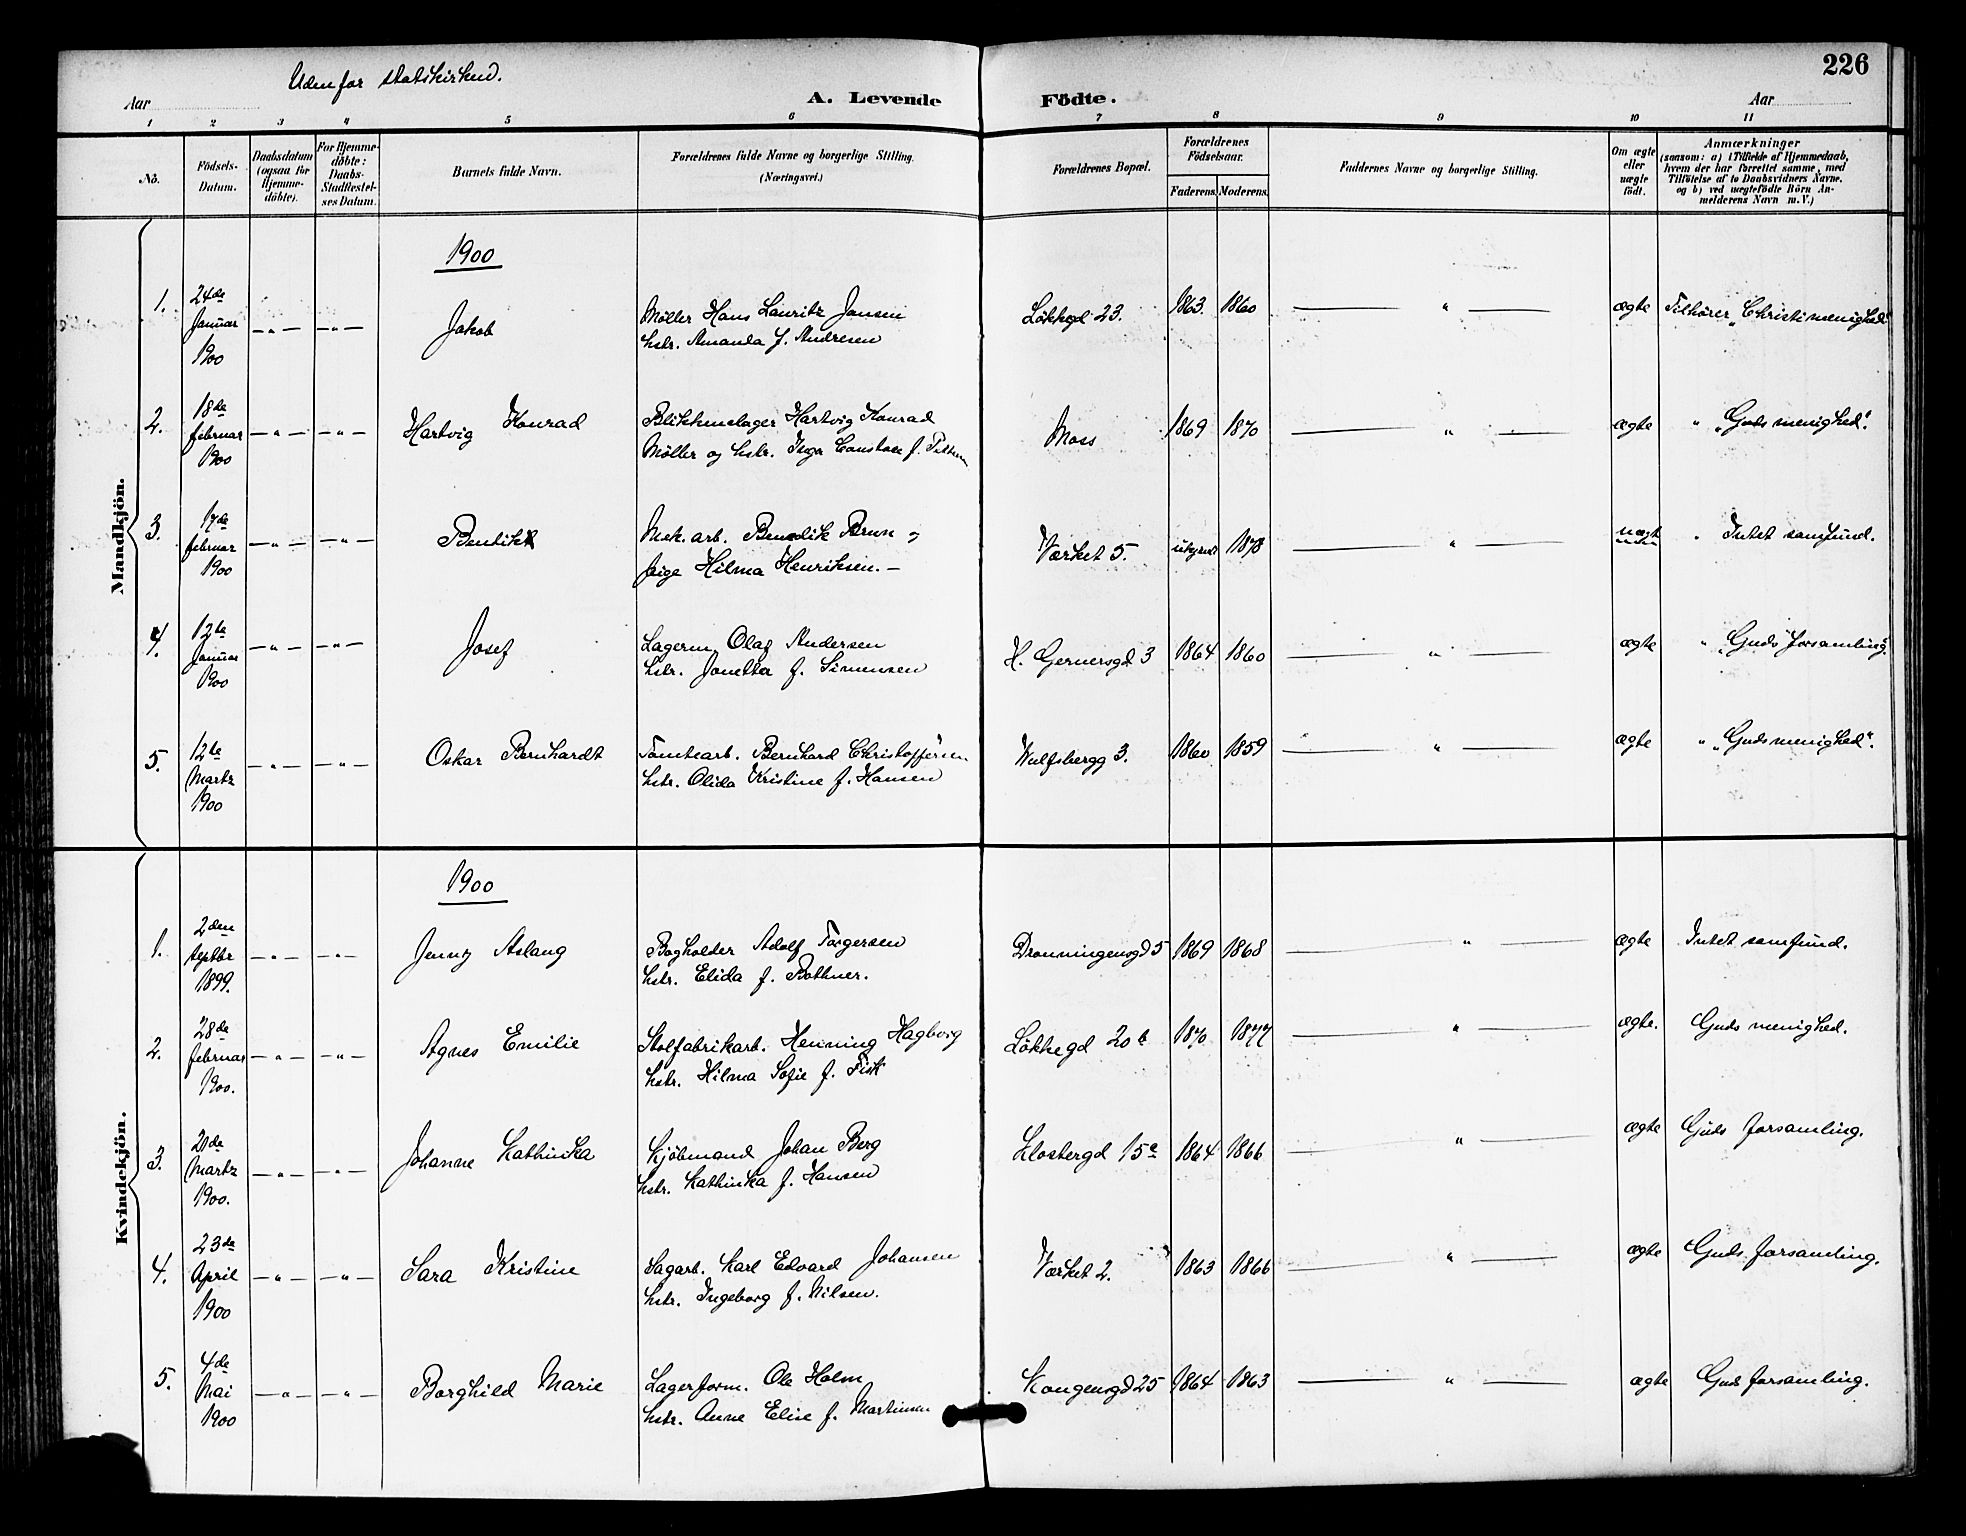 226
Udenfor statskirken.
Aar
A. Levende Födte.
Aar
1 2 3 4 5 6 7 8 9 10 11
No.
Födsels-Datum.
Daabsdatum (ogsaa for Hjemme-döbte).
For Hjemme-döbte: Daabs-Stadfæstel-ses Datum.
Barnets fulde Navn.
Forældrenes fulde Navne og borgerlige Stilling.
(Næringsvei.)
Forældrenes Bopæl.
Forældrenes Födselsaar.
Faderens. Moderens.
Faddernes Navne og borgerlige Stilling.
Om ægte eller uægte födt.
Anmærkninger
(saasom: a) i Tilfælde af Hjemmedaab,
hvem der har forrettet samme, med
Tilföielse af to Daabsvidners Navne.
og b) ved uægtefödte Börn An-
melderens Navn m. V.)
Mandkjön.
1900
1. 24de Januar 1900 — „ — — „ — Jakob
Møller Hans Lauritz Jansen
hstr. Amanda f. Andresen
Løkkegd 23. 1863. 1860 — „ — ægte Tilhører „Christi menighed"
2. 18de februar 1900 — „ — — „ — Hartvig Konrad
Blikkenslager Hartvig Konrad
Møller og hstr. Inga Constance f.
Moss 1869 1870 — „ — ægte „ „Guds menighed".
3. 17de februar 1900 — „ — — „ — Bendikt
Mek. arb. Benedik Brun
pige Hilma Henriksen. —
Værket 5. ukjendt 1878 — „ — uægte „ Intet samfund.
4. 12te Januar 1900 — „ — — „ — Josef
Lagerm. Olaf Andersen
hstr. Jonetta f. Simensen
H. Gernersgd 3 1864 1860 — „ — ægte „ „Guds forsamling".
5. 12te Martz 1900 — „ — — „ — Oskar Bernhardt
Tomtearb. Bernhard Christoffersen
hstr. Olida Kristine f. Hansen
Wulfsbergg 3. 1860 1859 — „ — ægte „ „Guds menighed".
Kvindekjön.
1900
1. 2den septbr 1899. — „ — — „ — Jenny Aslaug
Bogholder Adolf Torgersen
hstr. Elida f. Bothner.
Dronningensgd 5 1869 1868 — „ — ægte Intet samfund.
2. 28de februar 1900. — „ — — „ — Agnes Emilie
Stolfabrikarb. Henning Hagborg
hstr. Hilma Sofie f. Fisk
Løkkegd 20b 1870 1877 — „ — ægte. Guds menighed.
3. 21de Martz 1900. — „ — — „ — Johanne Kathinka
Kjøbmand Johan Berg
hstr. Kathinka f. Hansen
Klostergd 15a 1864 1866 — „ — ægte Guds forsamling.
4. 23de April 1900 — „ — — „ — Sara Kristine
Sagarb. Karl Edvard Johansen
hstr. Ingeborg f. Nilsen.
Værket 2. 1863 1866 — „ — ægte Guds forsamling.
5. 4de Mai 1900 — „ — — „ — Borghild Marie
Lagerform. Ole Holm
hstr. Anne Elise f. Martinsen
Kongensgd 25 1864 1863 — „ — ægte Guds forsamling.